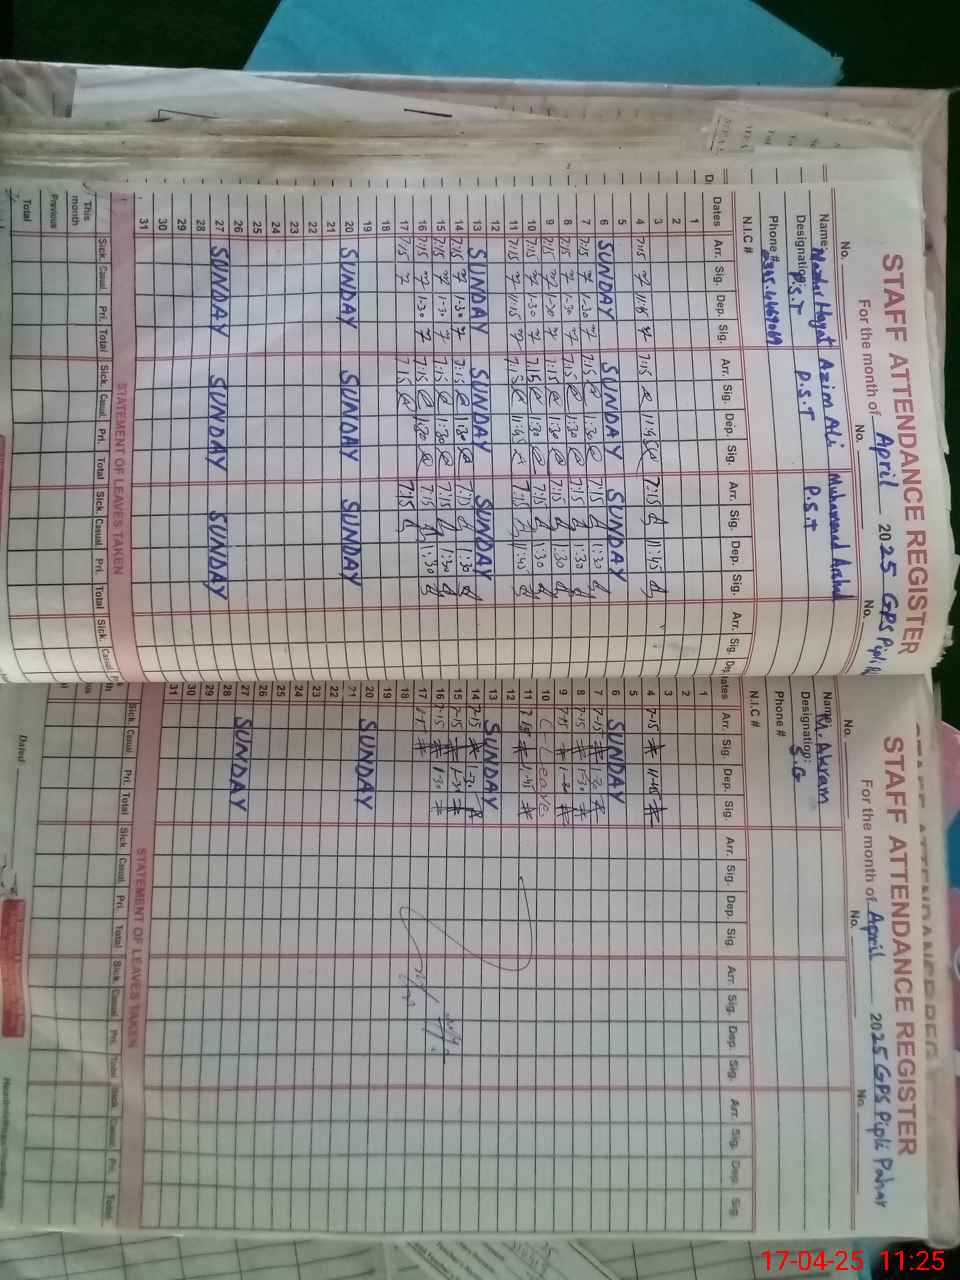 STAFF ATTENDANCE REGISTER
For the month of April 2025 GPS Pipli
No. No. No.
Name: Hayat Azim Ali Muhammad Arshad
Designation: P.S.T P.S.T P.S.T
Phone #
N.I.C #
Dates Arr. Sig. Dep. Sig. Arr. Sig. Dep. Sig. Arr. Sig. Dep. Sig. Arr. Sig.
1
2
3
4 7:15 11:45 7:15 11:45 7:15 11:45
5
6 SUNDAY SUNDAY SUNDAY
7 7:15 1:30 7:15 1:30 7:15 1:30
8 7:15 1:30 7:15 1:30 7:15 1:30
9 7:15 1:30 7:15 1:30 7:15 1:30
10 7:15 1:30 7:15 1:30 7:15 1:30
11 7:15 11:15 7:15 11:45 7:15 11:45
12
13 SUNDAY SUNDAY SUNDAY
14 7:15 1:30 7:15 1:30 7:15 1:30
15 7:15 1:30 7:15 1:30 7:15 1:30
16 7:15 1:30 7:15 1:30 7:15 1:30
17 7:15 7:15 7:15
18
19
20 SUNDAY SUNDAY SUNDAY
21
22
23
24
25
26
27 SUNDAY SUNDAY SUNDAY
28
29
30
31
STATEMENT OF LEAVES TAKEN
Sick. Casual Pri. Total Sick. Casual Pri. Total Sick. Casual Pri. Total Sick. Casual
This month
Previous
Total
STAFF ATTENDANCE REGISTER
For the month of April 2025 GPS Pipli Pahar
No. No. No.
Name: Akram
Designation: S.G
Phone #
N.I.C #
Dates Arr. Sig. Dep. Sig. Arr. Sig. Dep. Sig. Arr. Sig. Dep. Sig. Arr. Sig. Dep. Sig.
1
2
3
4 7-15 11-45
5
6 SUNDAY
7 7-15 1-30
8 7-15 1-30
9 7-15 1-30
10 Leave
11 7-15 11-45
12
13 SUNDAY
14 7-15 1-30
15 7-15 1-30
16 7-15 1-30
17 7-15
18
19
20 SUNDAY
21
22
23
24
25
26
27 SUNDAY
28
29
30
31
STATEMENT OF LEAVES TAKEN
Sick. Casual Pri. Total Sick. Casual Pri. Total Sick. Casual Pri. Total
Dated
17-04-25 11:25